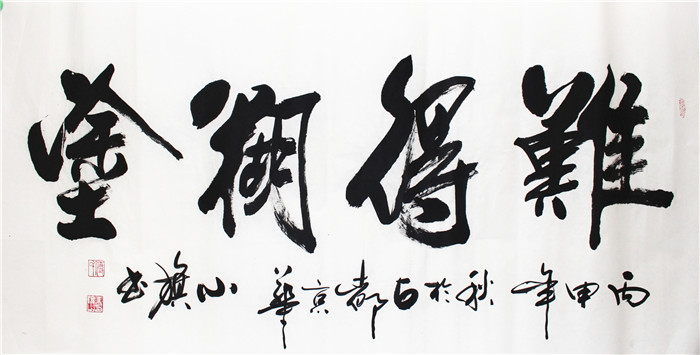 難得糊塗
丙申年秋於古都京華小旗书